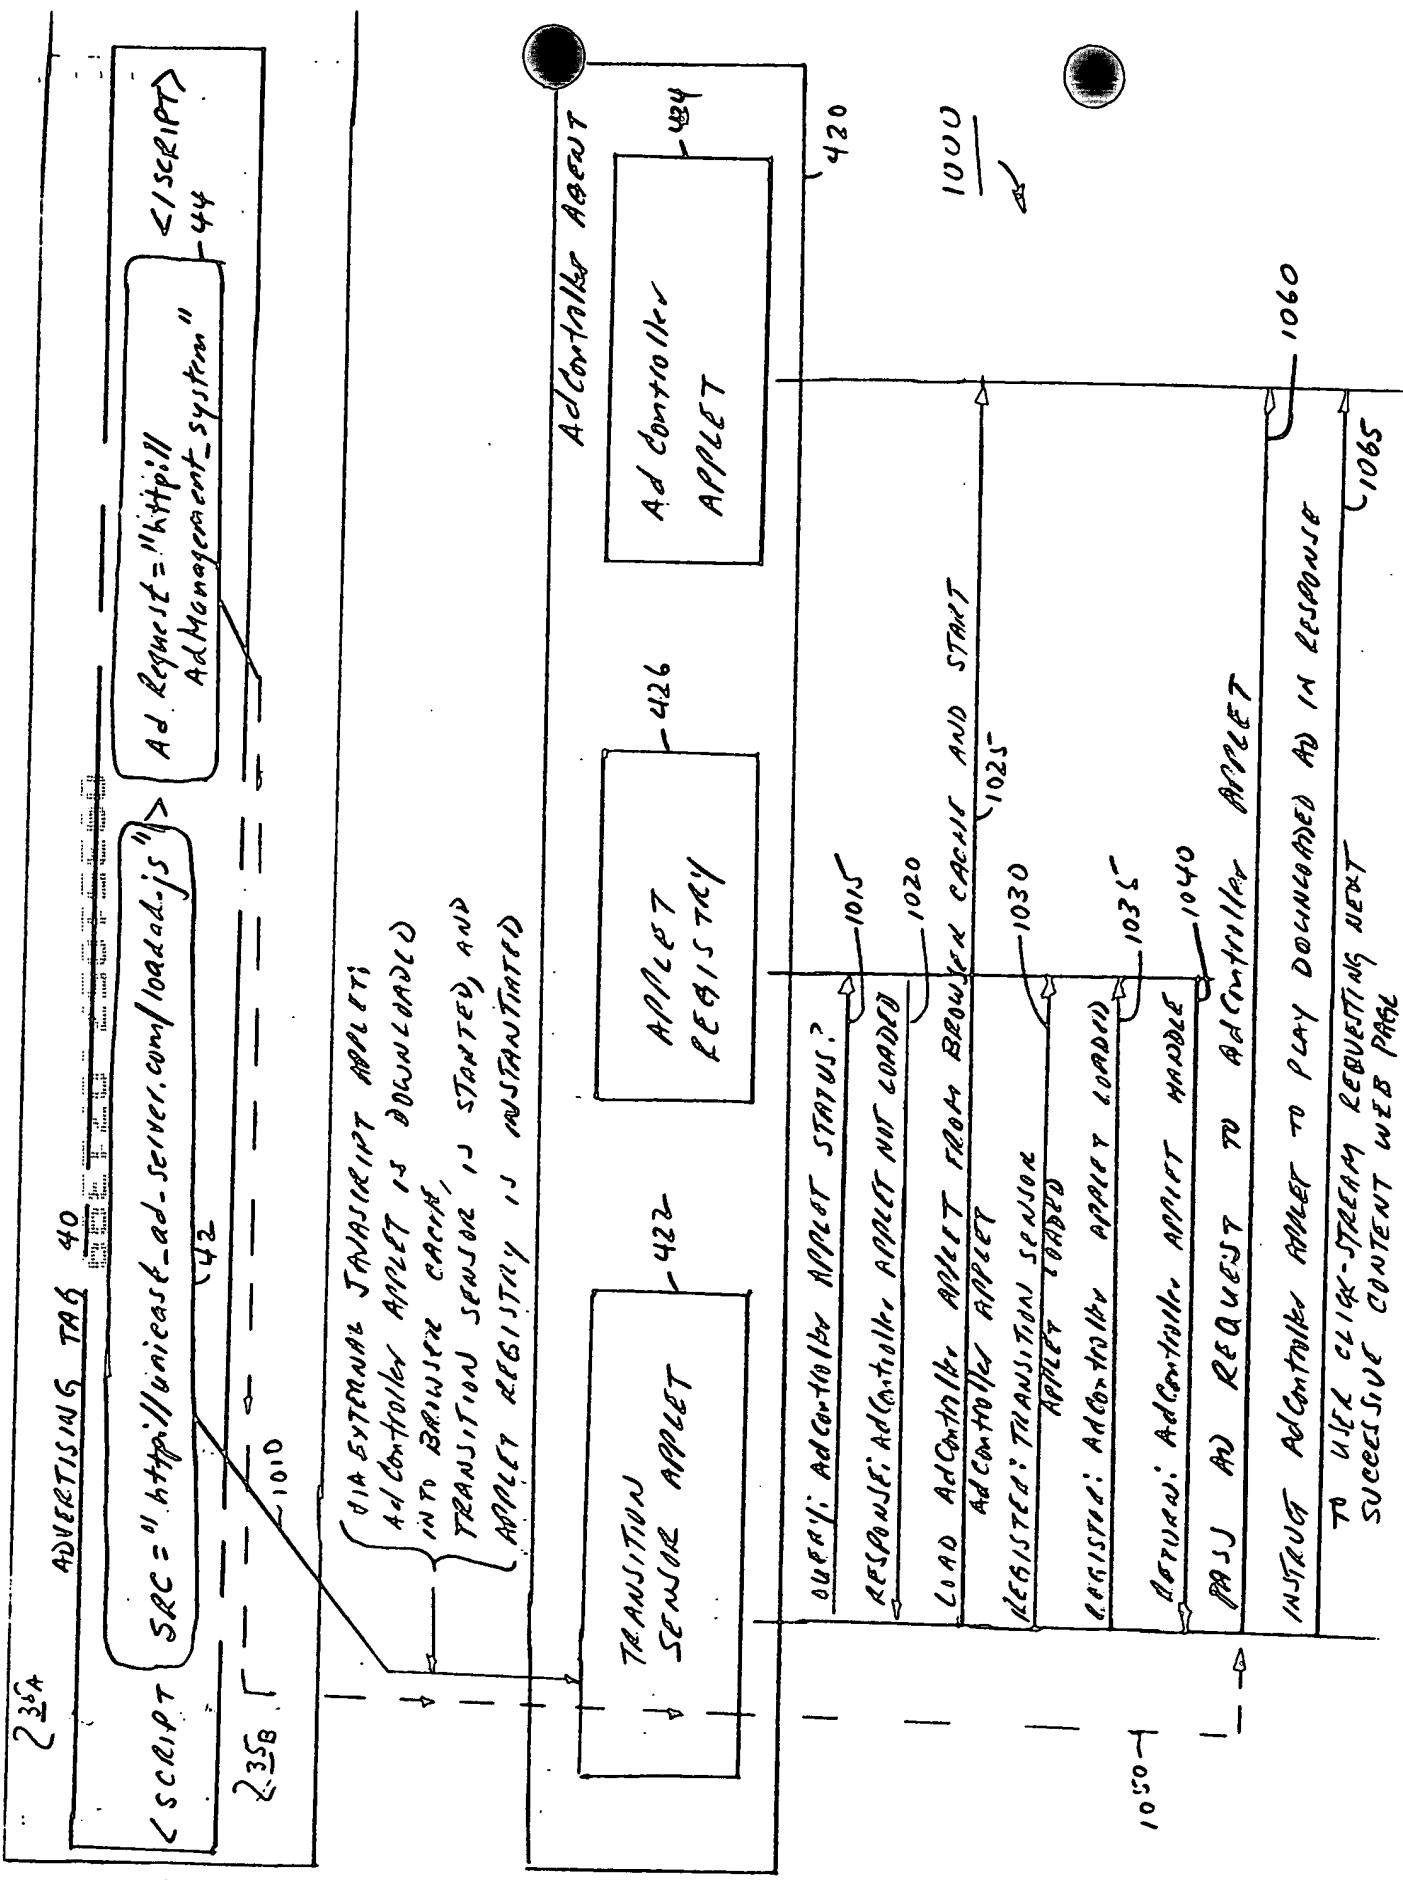 235A
ADVERTISING TAG 40
<SCRIPT SRC="http://unicast_ad_server.com/loadad.js"> Ad Request="http://
AdManagement_system"
</SCRIPT>
42
44
235B
1010
VIA EXTERNAL JAVASCRIPT APPLET;
AdController APPLET IS DOWNLOADED
INTO BROWSER CACHE,
TRANSITION SENSOR IS STARTED, AND
APPLET REGISTRY IS INSTANTIATED
AdController AGENT
TRANSITION
SENSOR APPLET
422
APPLET
REGISTRY
426
Ad Controller
APPLET
424
420
1000
QUERY: AdController APPLET STATUS?
1015
RESPONSE: AdController APPLET NOT LOADED
1020
LOAD AdController APPLET FROM BROWSER CACHE AND START
AdController APPLET
1025
REGISTER: TRANSITION SENSOR
APPLET LOADED
1030
REGISTER: AdController APPLET LOADED
1035
RETURN: AdController APPLET HANDLE
1040
PASS AD REQUEST TO AdController APPLET
1050
1060
INSTRUCT AdController APPLET TO PLAY DOWNLOADED AD IN RESPONSE
TO USER CLICK-STREAM REQUESTING NEXT
SUCCESSIVE CONTENT WEB PAGE
1065